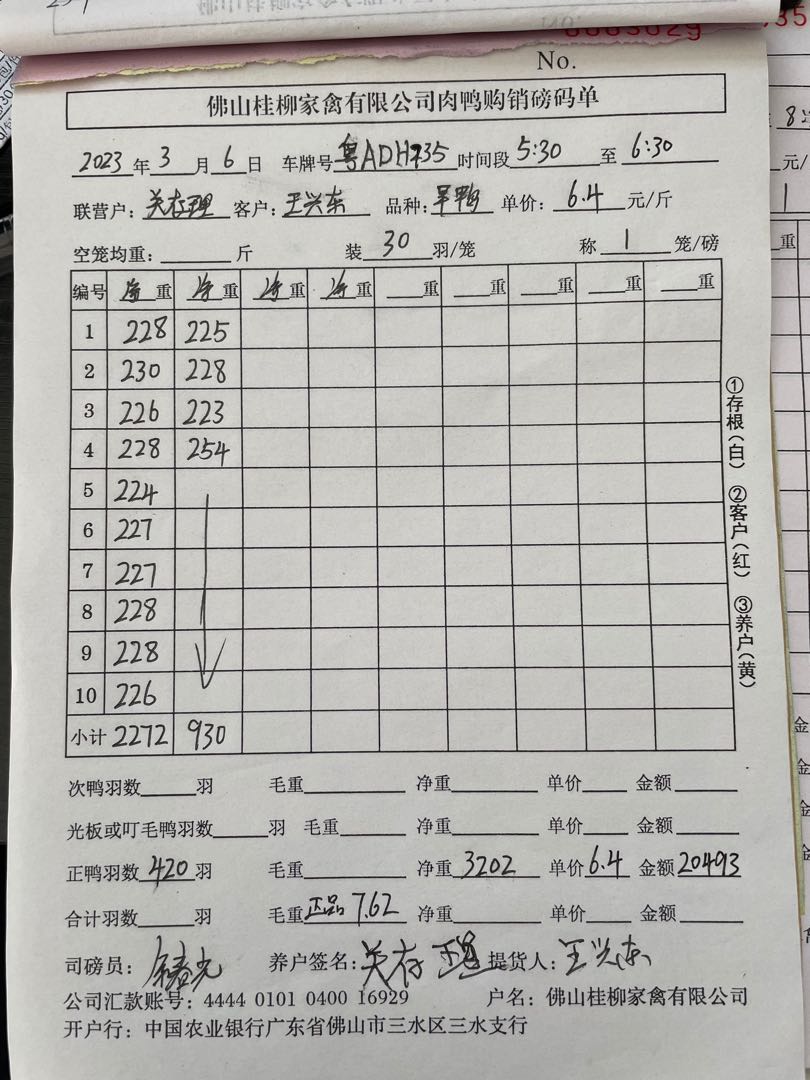 0003029
No.
佛山桂柳家禽有限公司肉鸭购销磅码单
2023年3月6日 车牌号粤ADH735时间段5:30至6:30
联营户：关存理 客户：王兴东 品种：旱鸭 单价：6.4元/斤
空笼均重：斤 装30羽/笼 称1笼/磅
编号 净重 净重 净重 净重 重 重 重 重 重
1 228 225
2 230 228
3 226 223
4 228 254
5 224
6 227
7 227
8 228
9 228
10 226
小计 2272 930
①存根(白) ②客户(红) ③养户(黄)
次鸭羽数羽 毛重 净重 单价 金额
光板或叮毛鸭羽数羽 毛重 净重 单价 金额
正鸭羽数420羽 毛重 净重3202 单价6.4 金额20493
合计羽数羽 毛重正品7.62 净重 单价 金额
司磅员： 养户签名：关存理 提货人：王兴东
公司汇款账号：4444 0101 0400 16929 户名：佛山桂柳家禽有限公司
开户行：中国农业银行广东省佛山市三水区三水支行